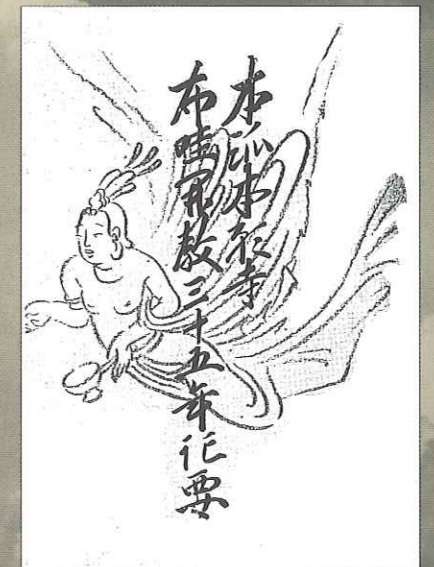 本派本願寺
布哇開教三十五年記要